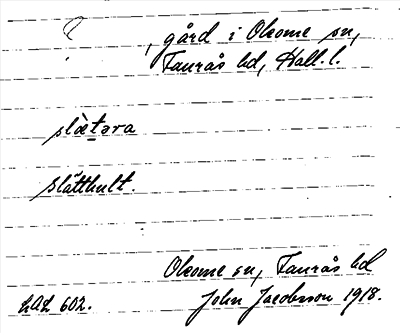 ?, gård i Okome sn,
Faurås hd, Hall. l.
slæ̀təra
slätthult.
Okome sn, Faurås hd
LAL 602. John Jacobsson 1918.